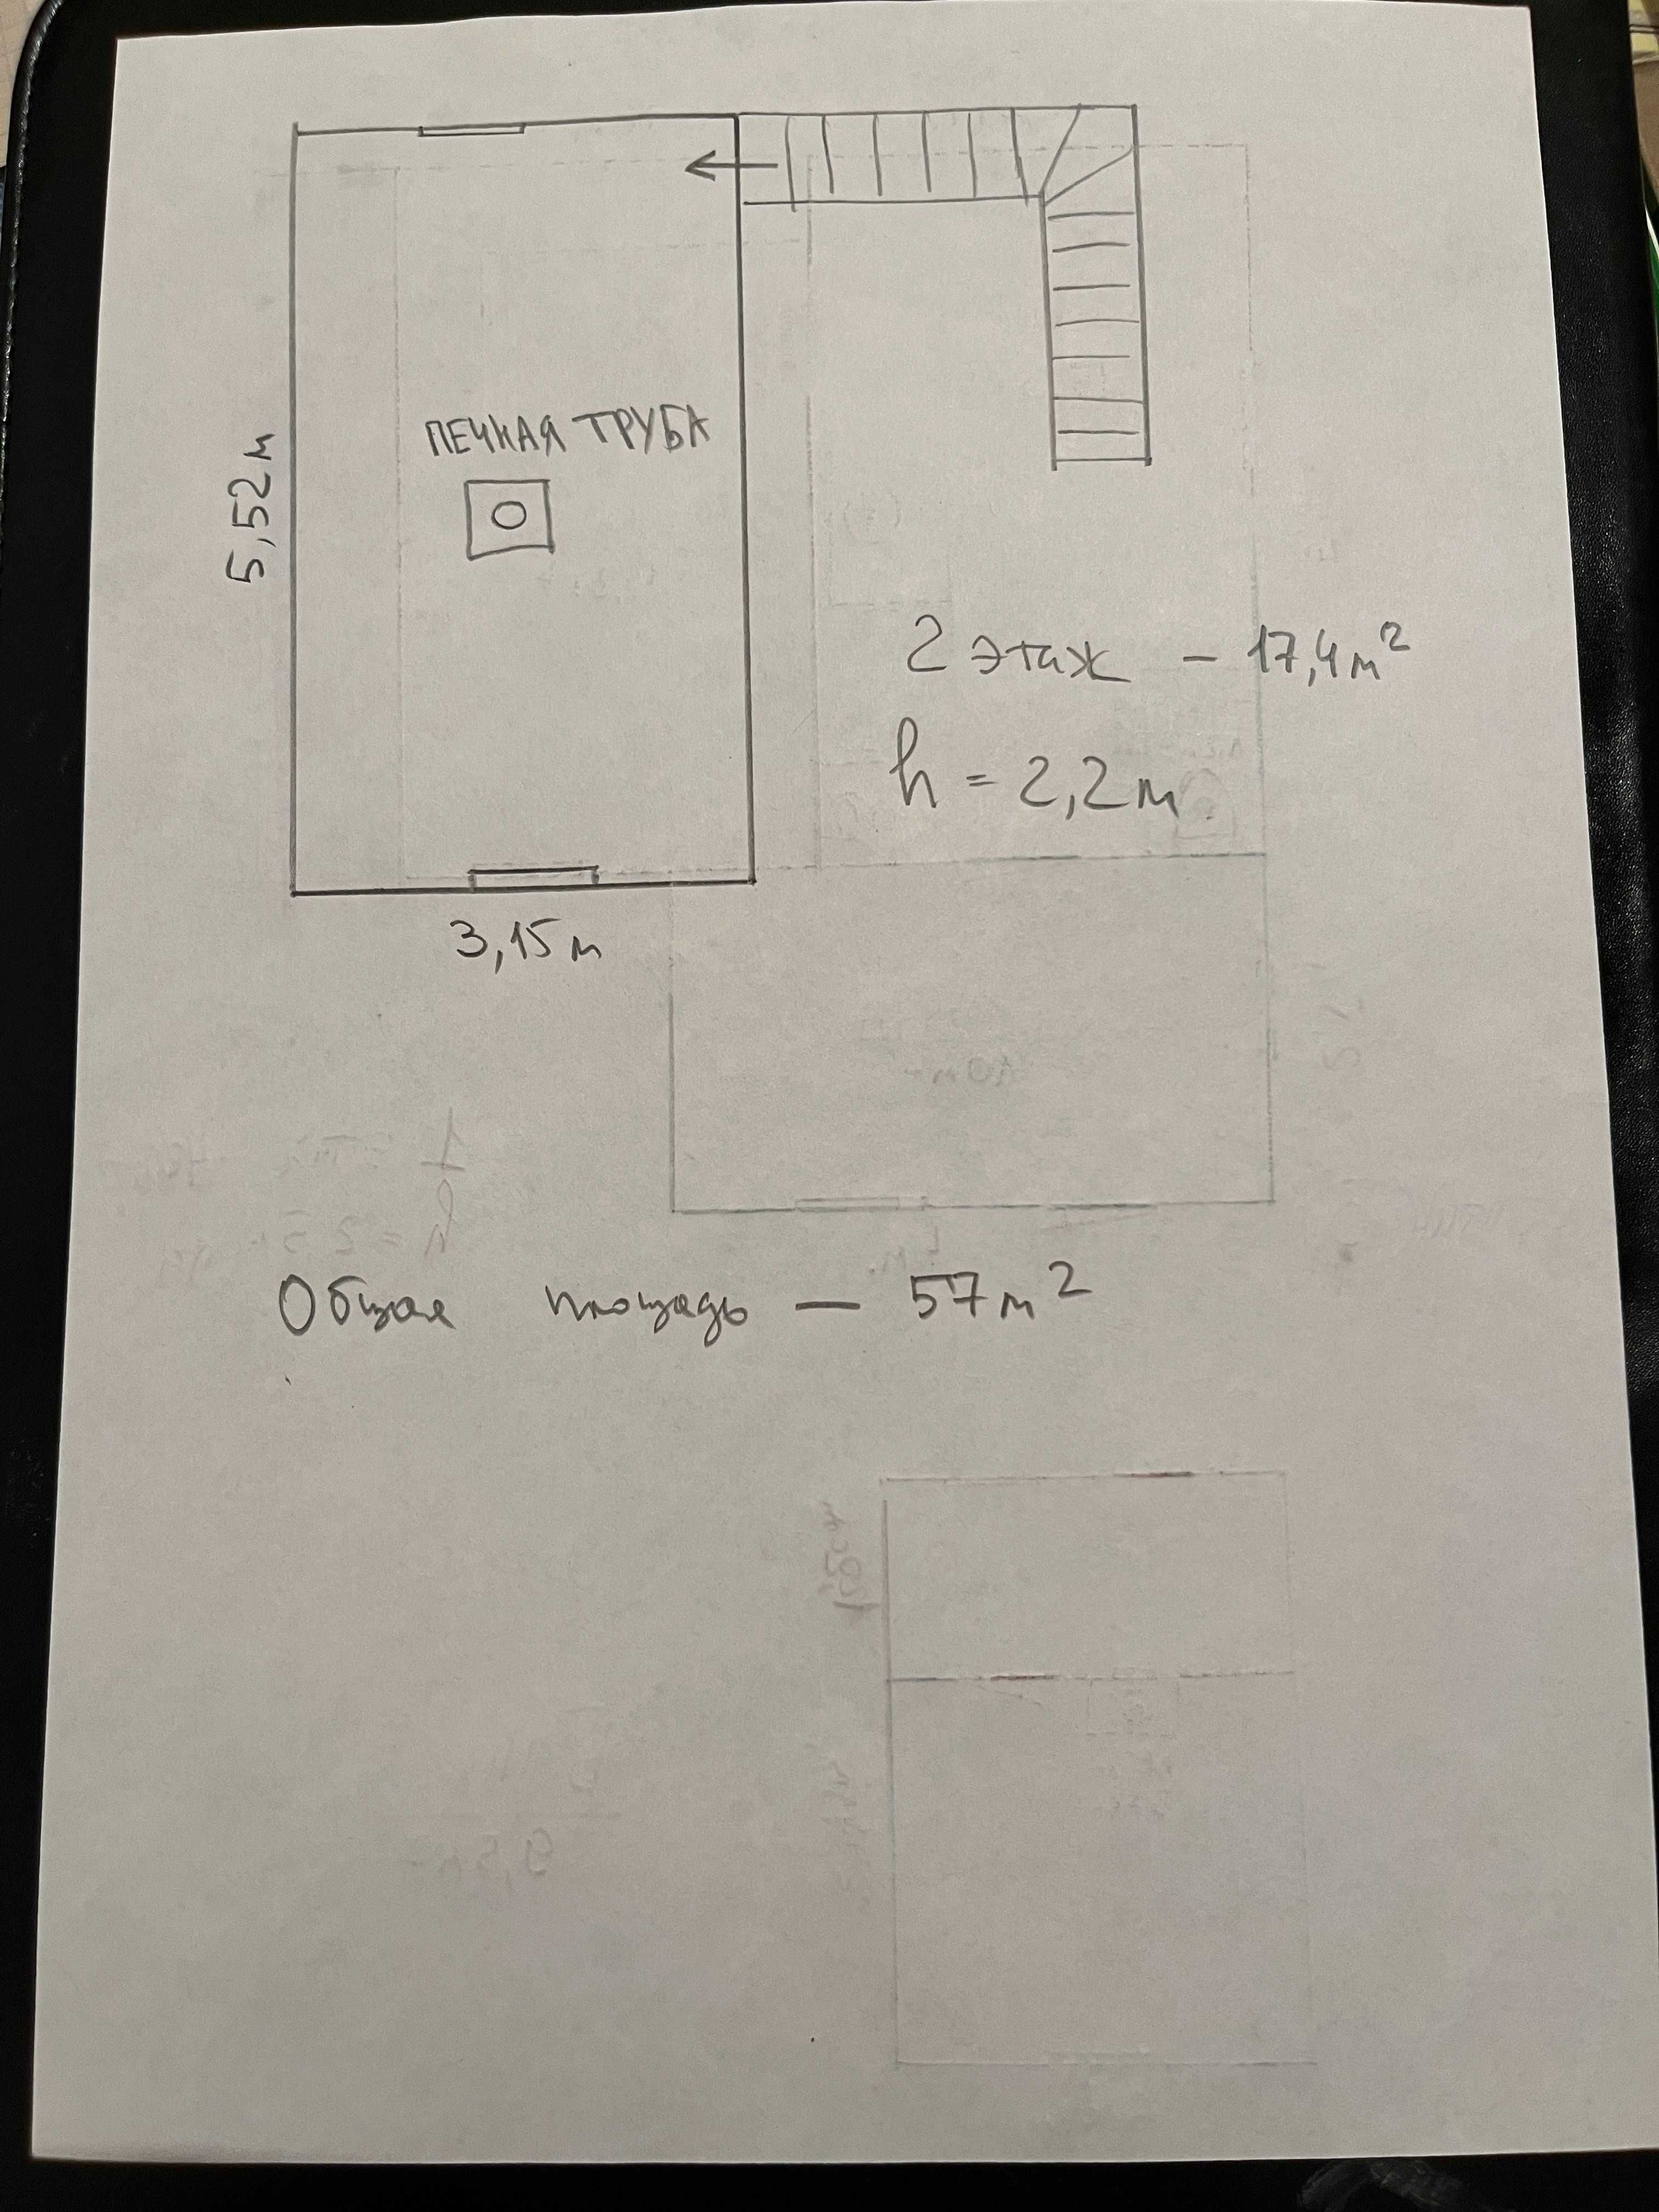 ПЕЧНАЯ ТРУБА
5,52 м
2 этаж – 17,4 м²
h = 2,2 м
3,15 м
Общая площадь — 57 м²